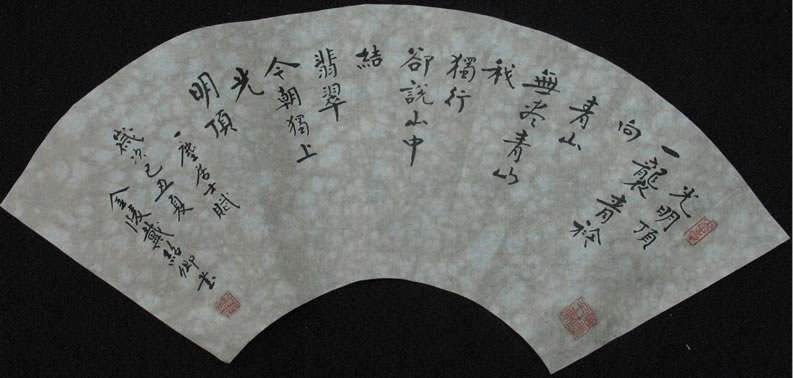 光明頂
一襲青衫
向
青山
無尽青山
我
獨行
卻說山中
結
翡翠
今朝獨上
光
明頂
一塵居士賦
歲次己丑夏
金陵戴紹卿書